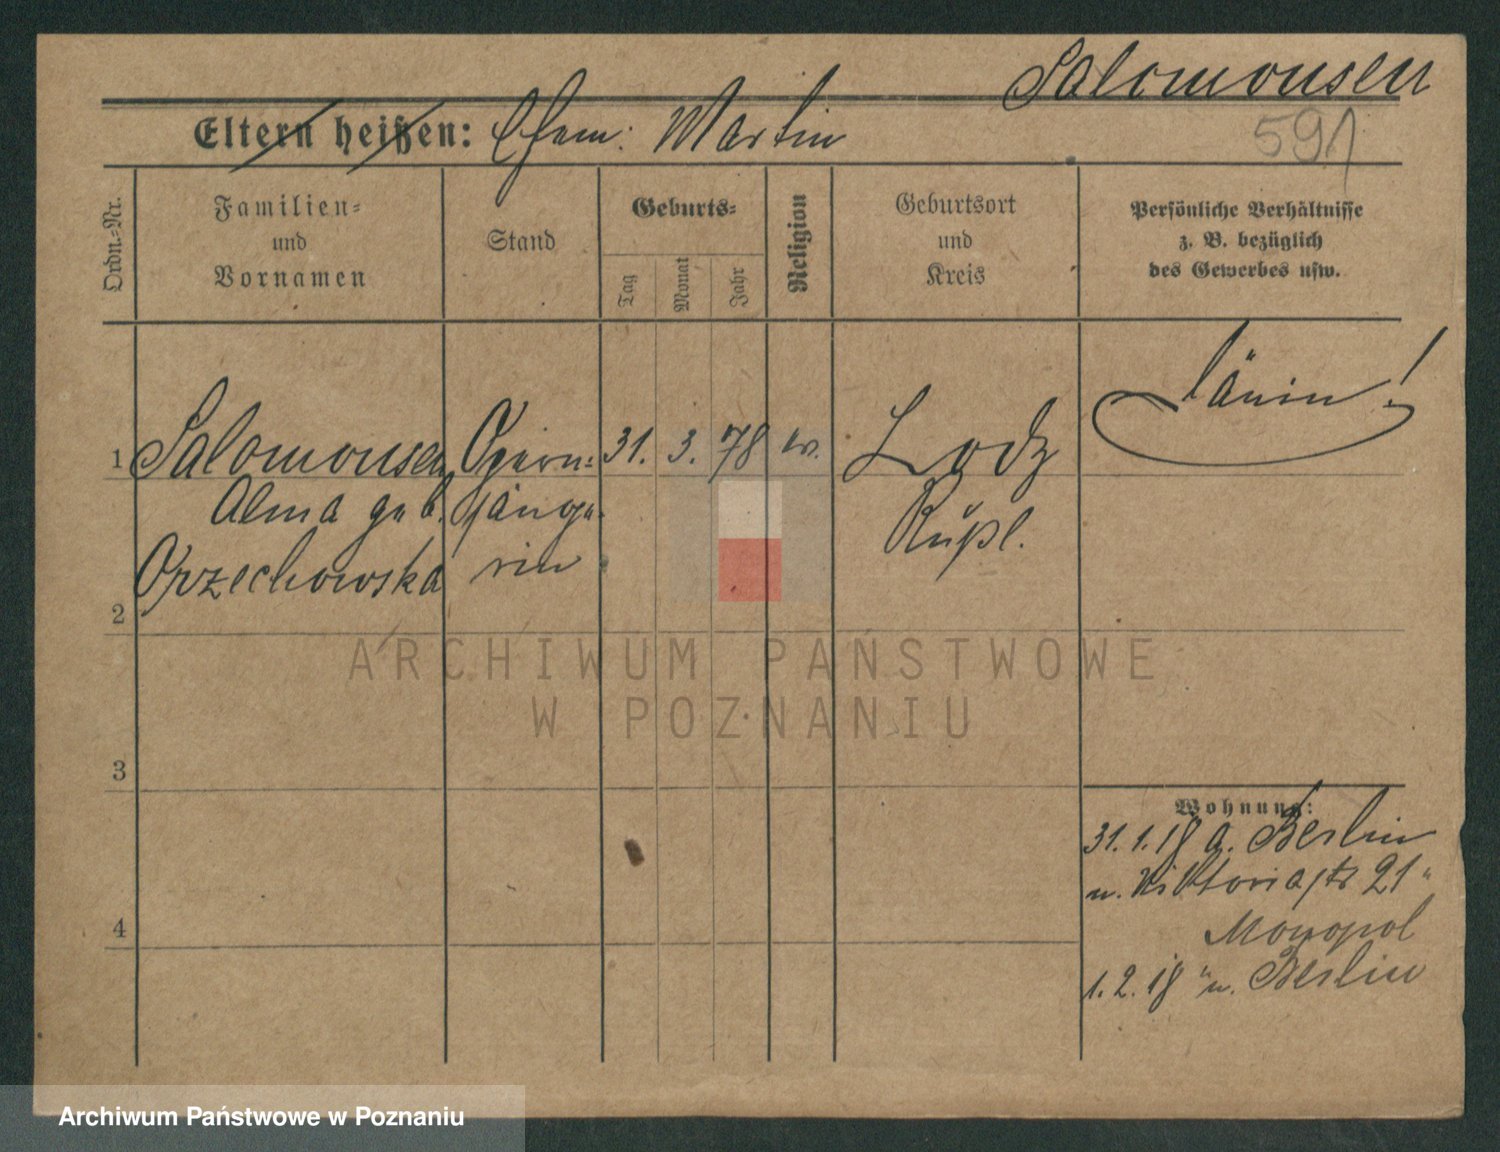 Salomonsen
Eltern heißen: Ehem: Martin
591
Ordn.-Nr.
Familien-
und
Vornamen
Stand
Geburts-
Tag
Monat
Jahr
Religion
Geburtsort
und
Kreis
Persönliche Verhältnisse
z. B. bezüglich
des Gewerbes usw.
Dänin!
1 Salomonsen Opern- 31. 3. 78 ev. Lodz
Alma geb. sänge- Rußl.
Orzechowska rin
2
ARCHIWUM PAŃSTWOWE
W POZNANIU
3
Wohnung:
31.1.18 a. Berlin
n. Viktoriastr 21
4
Monopol
1.2.18 n. Berlin
Archiwum Państwowe w Poznaniu